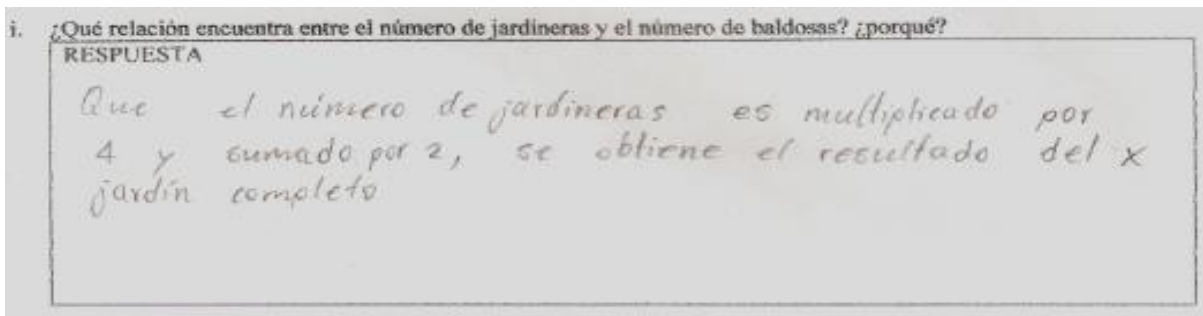 i. ¿Qué relación encuentra entre el número de jardineras y el número de baldosas? ¿porqué?
RESPUESTA
Que el número de jardineras es multiplicado por
4 y sumado por 2, se obtiene el resultado del x
jardín completo